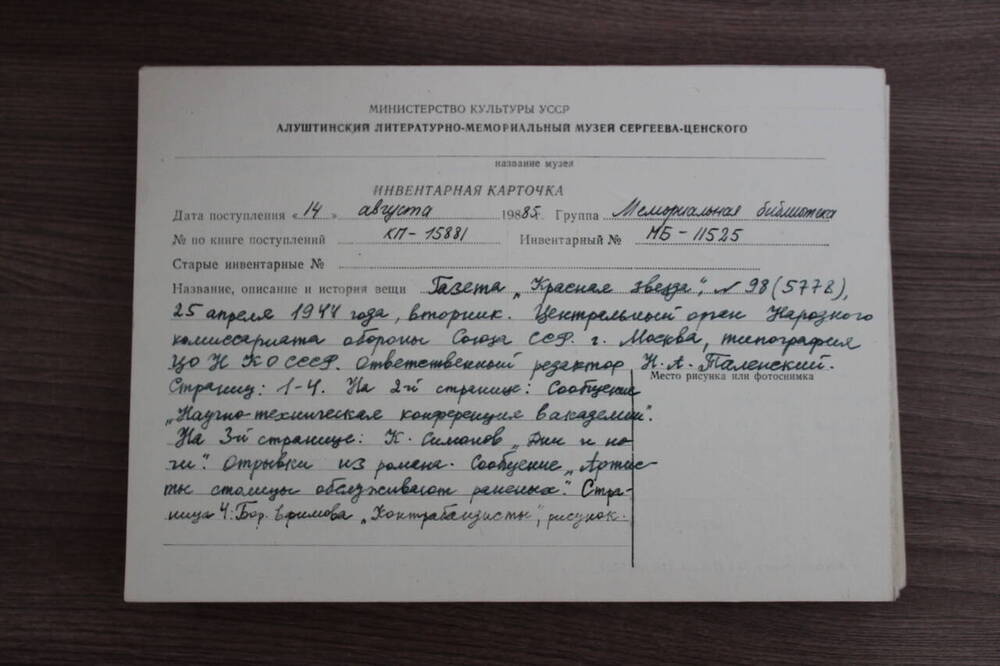 МИНИСТЕРСТВО КУЛЬТУРЫ УССР
АЛУШТИНСКИЙ ЛИТЕРАТУРНО-МЕМОРИАЛЬНЫЙ МУЗЕЙ СЕРГЕЕВА-ЦЕНСКОГО
название музея
ИНВЕНТАРНАЯ КАРТОЧКА
Дата поступления «14» августа 19885. Группа Мемориальная библиотека
№ по книге поступлений КП-15881 Инвентарный № МБ-11525
Старые инвентарные №
Название, описание и история вещи Газета „Красная звезда", № 98 (5778),
25 апреля 1944 года, вторник. Центральный орган Народного
комиссариата обороны Союза ССР. г. Москва, типография
ЦО НКО СССР. Ответственный редактор Н. А. Таленский.
Место рисунка или фотоснимка
Страниц: 1-4. На 2-й странице: Сообщение
„Научно-техническая конференция в академии".
На 3-й странице: К. Симонов „Дни и но-
чи". Отрывки из романа. Сообщение „Артис-
ты столицы обслуживают раненых". Стра-
ница 4: Бор. Ефимова „Контрабандисты", рисунок.